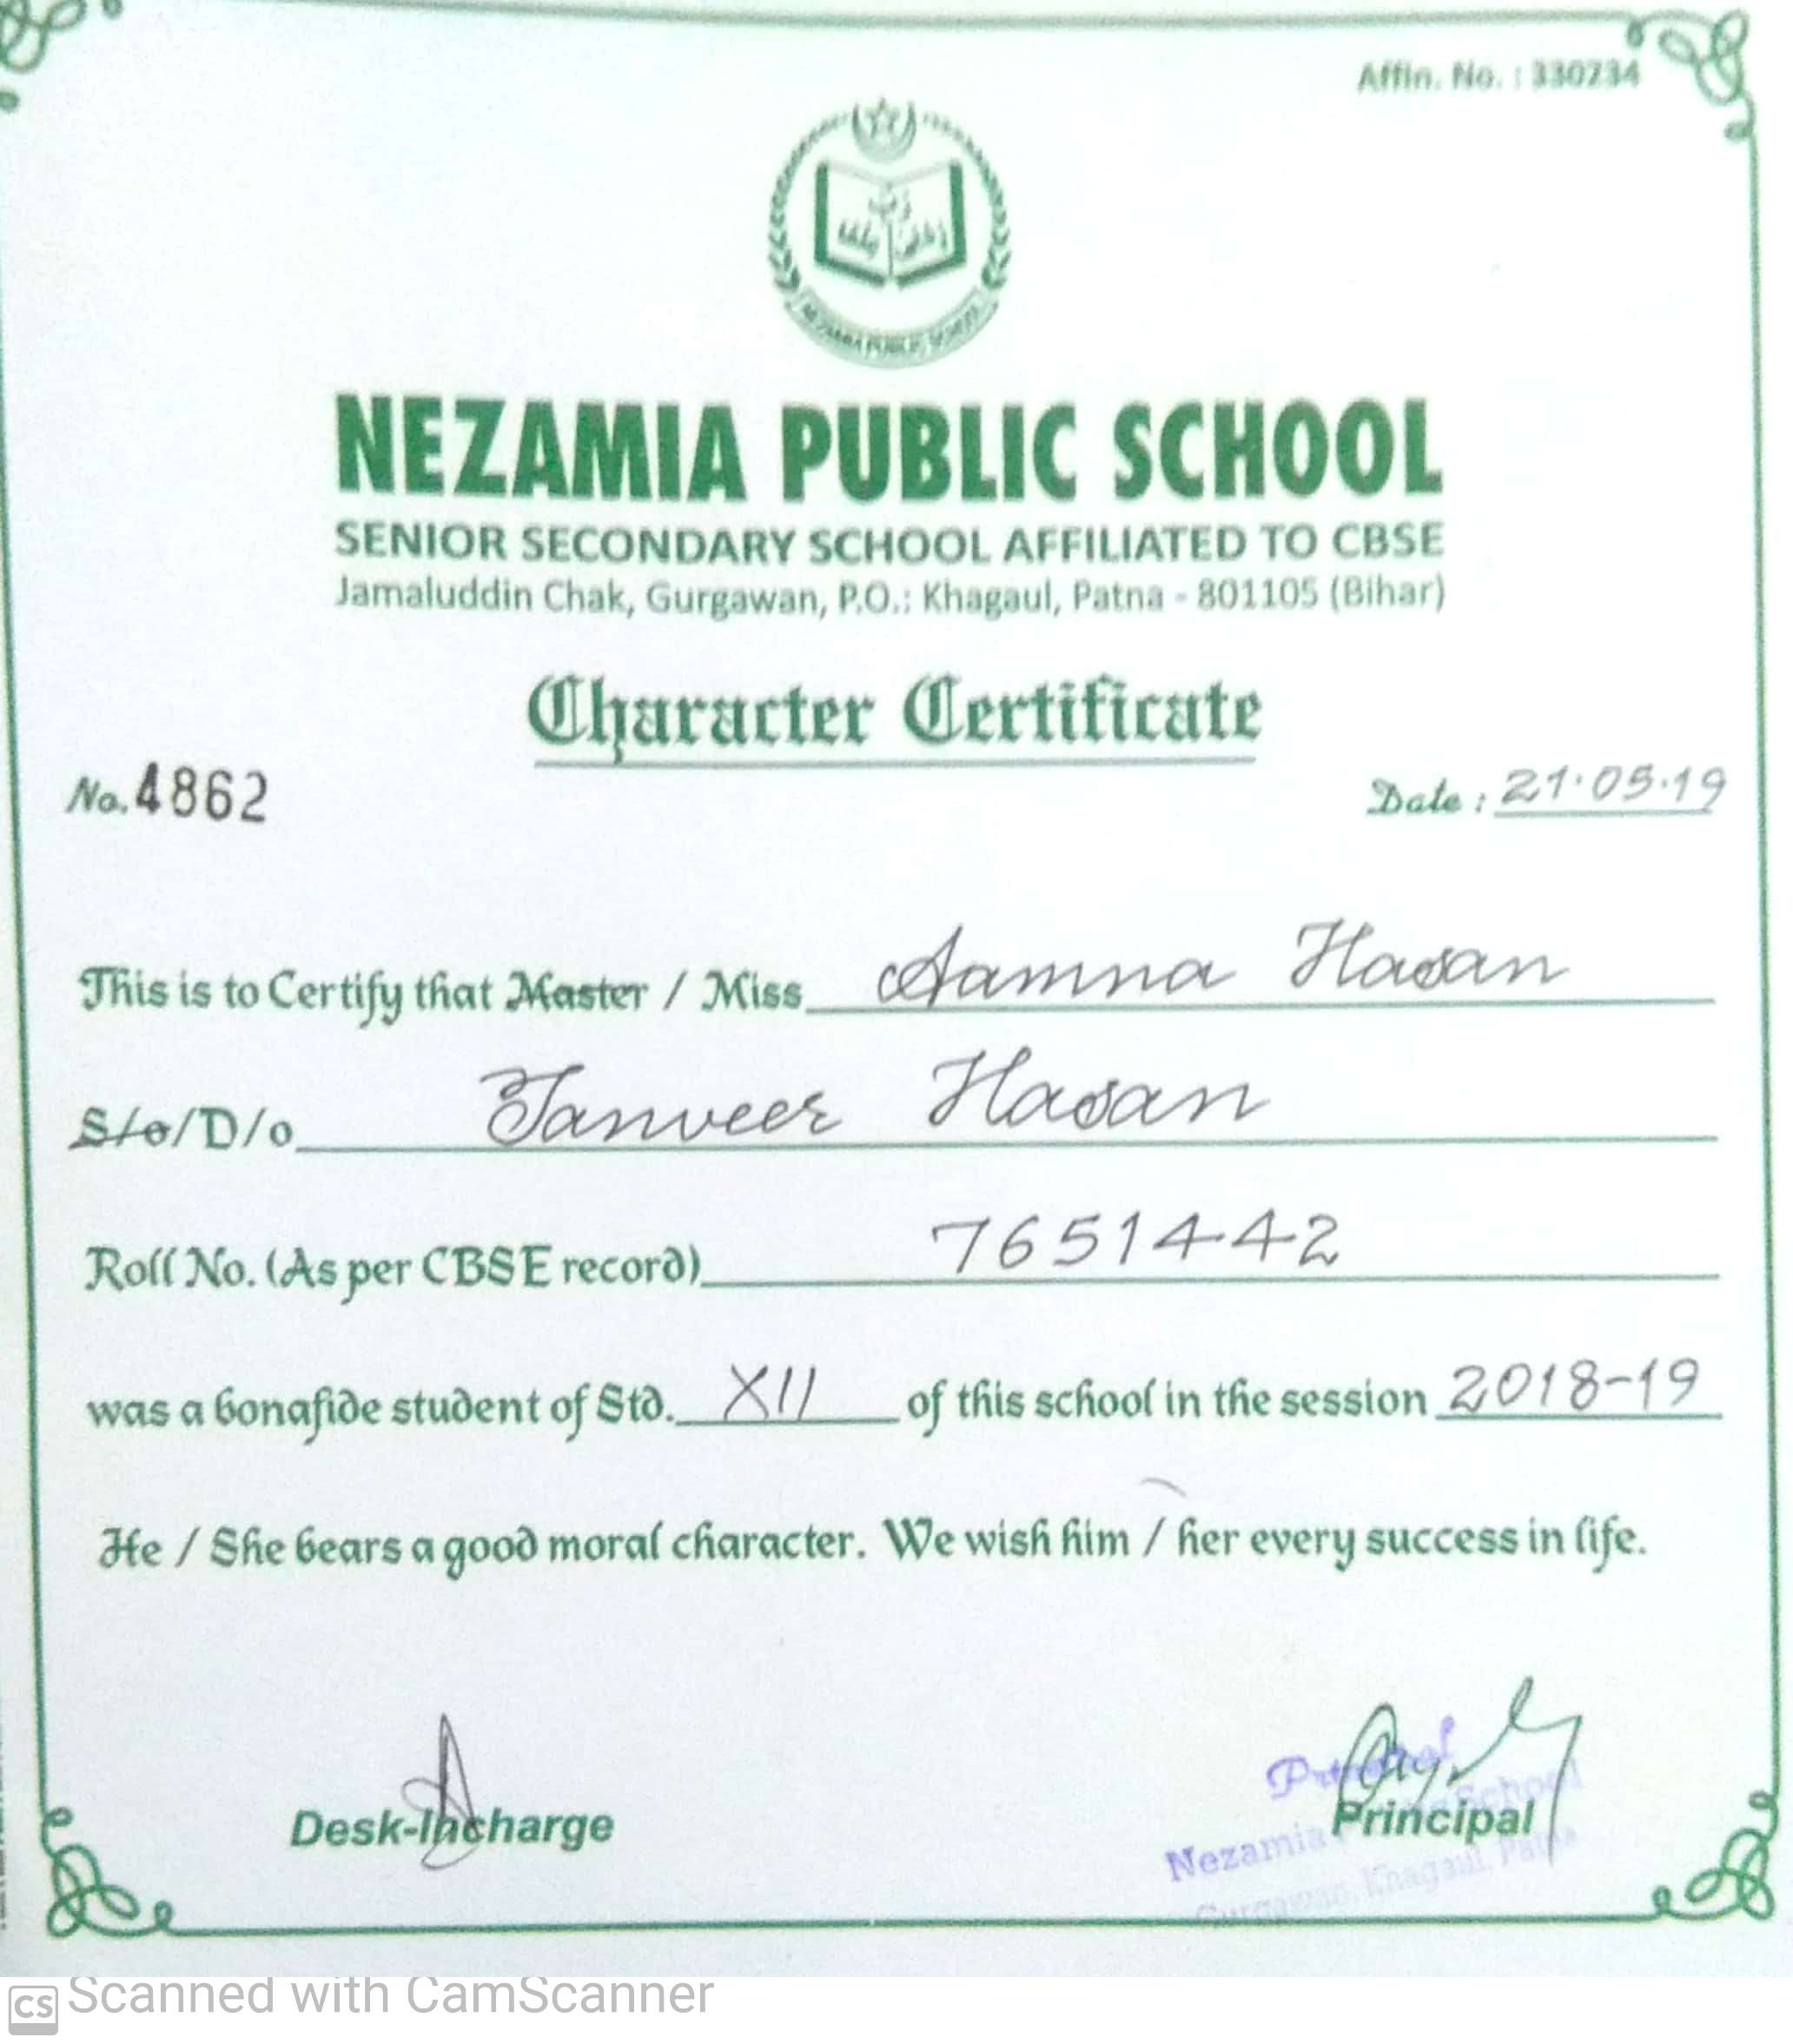 Affin. No. : 330234
NEZAMIA PUBLIC SCHOOL
NEZAMIA PUBLIC SCHOOL
SENIOR SECONDARY SCHOOL AFFILIATED TO CBSE
Jamaluddin Chak, Gurgawan, P.O.: Khagaul, Patna - 801105 (Bihar)
Character Certificate
No. 4862
Date : 21.05.19
This is to Certify that Master / Miss Aamna Hasan
S/o/D/o Tanveer Hasan
Roll No. (As per CBSE record) 7651442
was a bonafide student of Std. XII of this school in the session 2018-19
He / She bears a good moral character. We wish him / her every success in life.
Desk-Incharge
Principal
Principal
Nezamia School
Gurgawan, Khagaul, Patna
CS Scanned with CamScanner